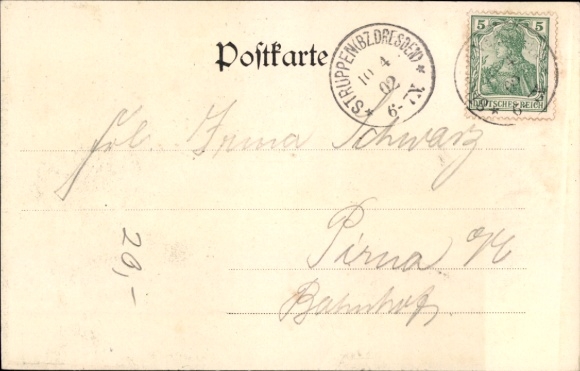 Postkarte
STRUPPEN (BZ. DRESDEN)
10 4
02
6-7N.
5 5
DEUTSCHES REICH
Frl. Irma Schwarz
Pirna
Bahnhof
20,-